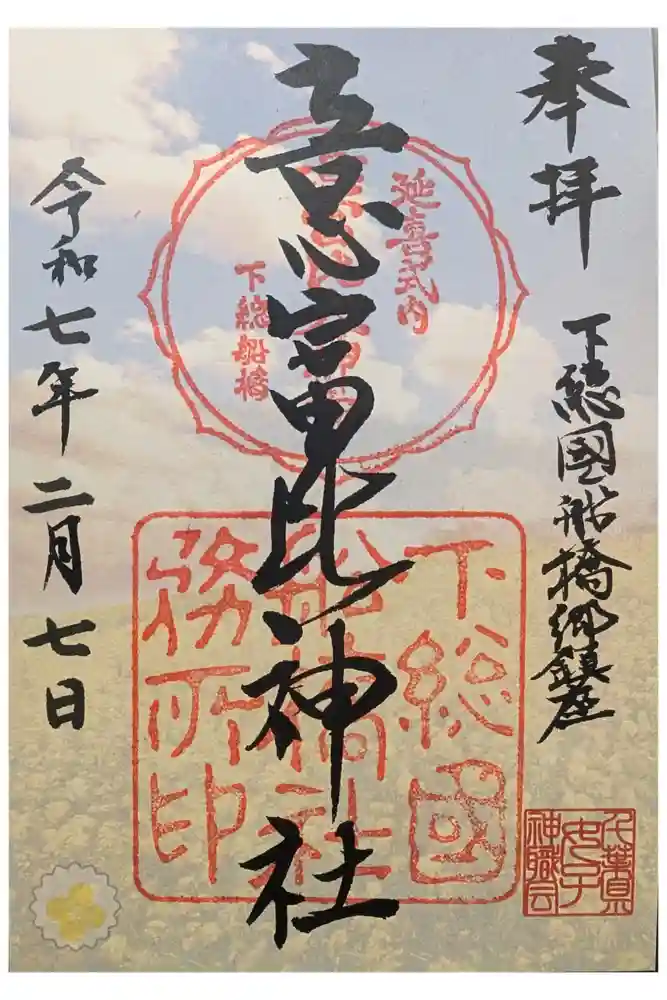 奉拝
下總國船橋郷鎮座
意富比神社
令和七年二月七日
延喜式内
下総船橋
下総國
船橋社
務所印
千葉県
女子
神職会